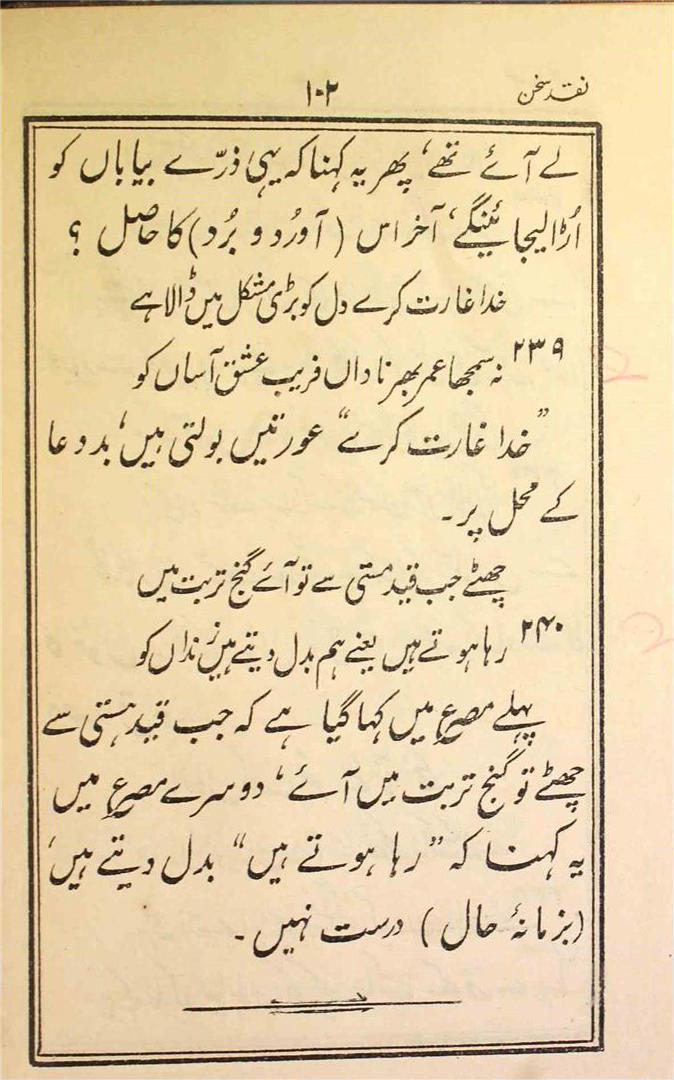 نقد سخن
۱۰۲
لے آئے تھے، پھر یہ کہنا کہ یہی ذرّے بیاباں کو
اڑا لیجائینگے، آخر اس (آوُرد و بُرد) کا حاصل ؟
خدا غارت کرے دل کو بڑی مشکل میں ڈالا ہے
۲۳۹ نہ سمجھا عمر بھر ناداں فریب عشق آساں کو
”خدا غارت کرے“ عورتیں بولتی ہیں، بد دعا
کے محل پر۔
چھٹے جب قید ہستی سے تو آئے گنج تربت میں
۲۴۰ رہا ہوتے ہیں یعنے ہم بدل دیتے ہیں زنداں کو
پہلے مصرع میں کہا گیا ہے کہ جب قید ہستی سے
چھٹے تو گنج تربت میں آئے، دوسرے مصرع میں
یہ کہنا کہ ”رہا ہوتے ہیں“ بدل دیتے ہیں،
(بزمانۂ حال) درست نہیں۔